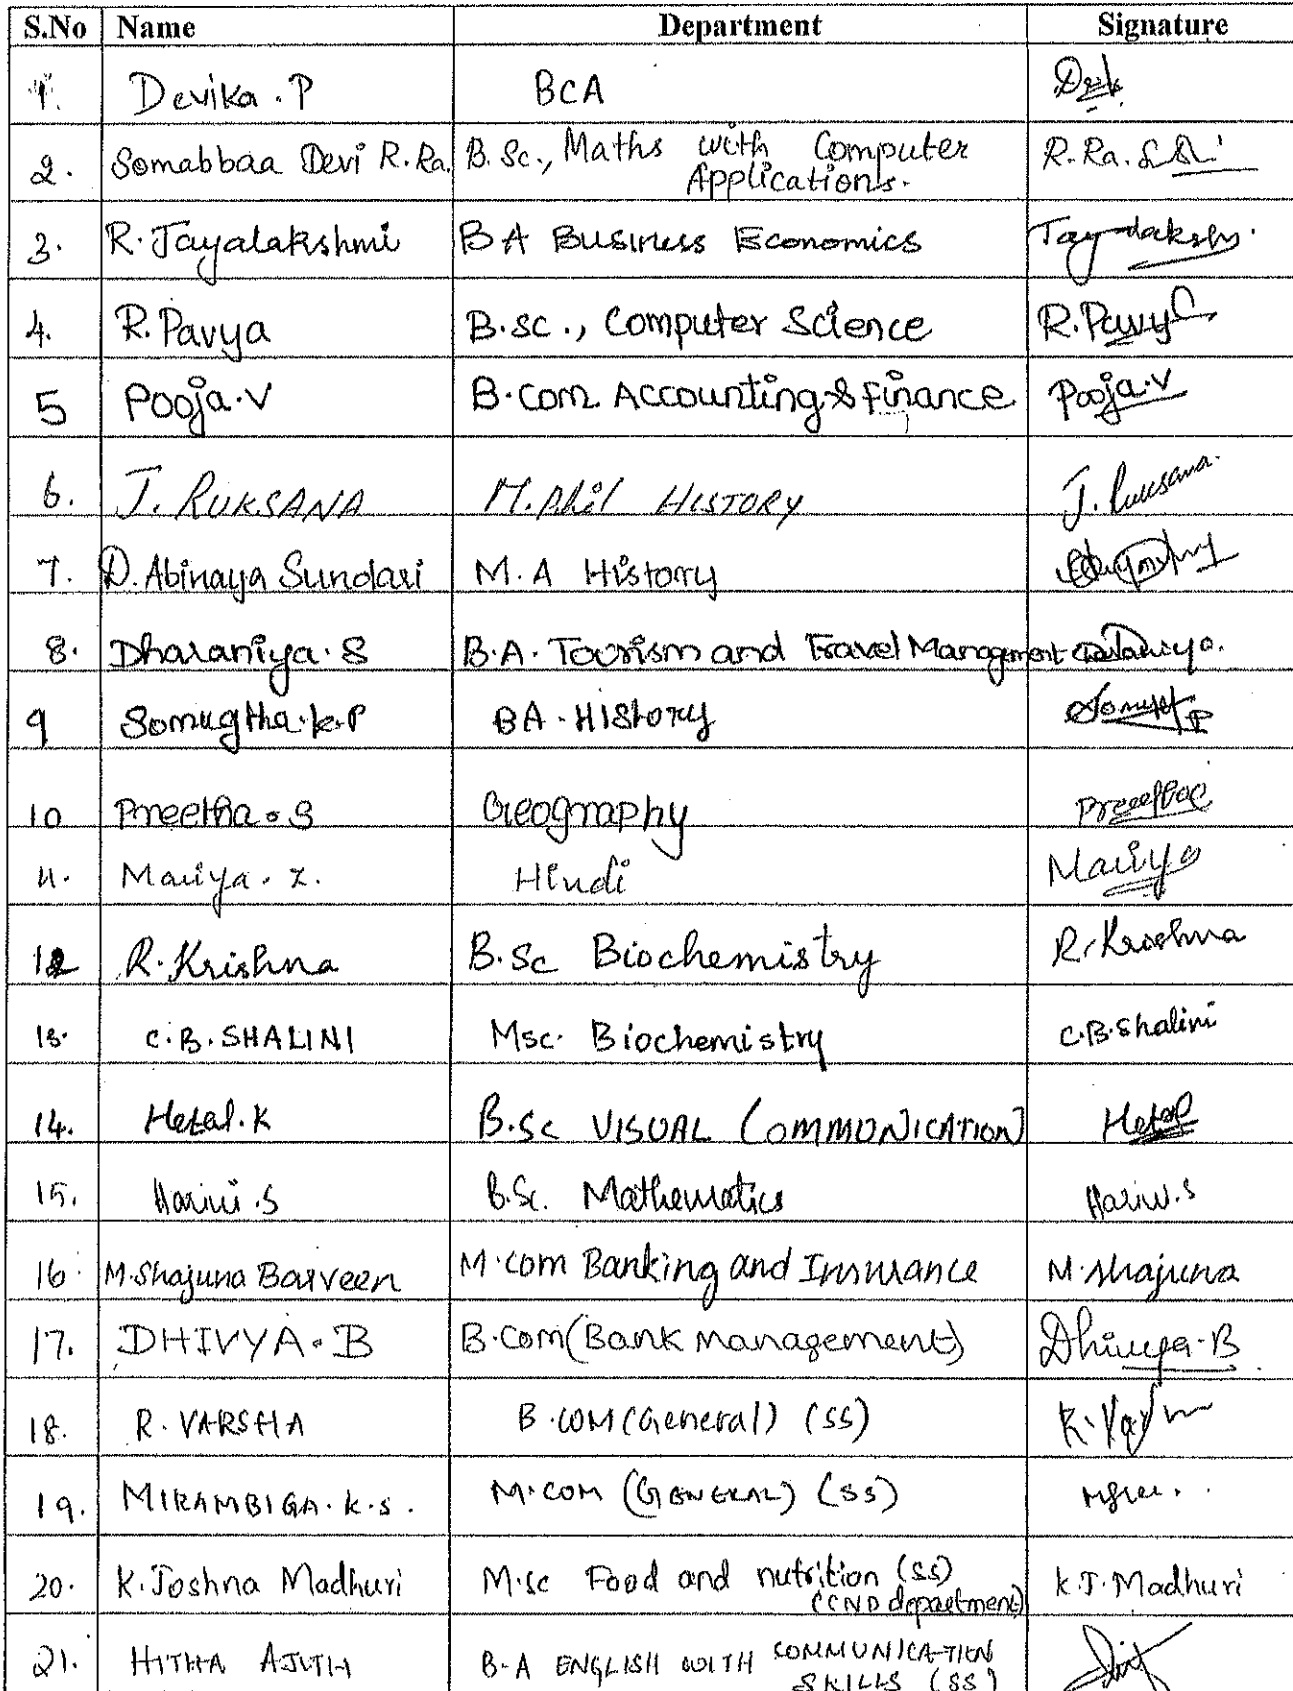 S.No Name Department Signature
1. Devika . P BCA
2. Somabbaa Devi R. Ra. B. Sc., Maths with Computer R. Ra.
Applications.
3. R. Jayalakshmi BA Business Economics Jayalakshmi
4. R. Pavya B.sc ., Computer Science R. Pavy
5 Pooja . V B. Com. Accounting & Finance Pooja . V
6. J. RUKSANA M. Phil HISTORY J. Ruksana.
7. D. Abinaya Sundari M. A History
8. Dharaniya . S B.A. Tourism and Travel Management
9 Somugtha . k. P BA - History
10 Preetha . S Geography Preetha
11. Mariya . Z. Hindi Mariya
12 R. Krishna B. Sc Biochemistry R. Krishna
13. C. B. SHALINI Msc. Biochemistry C.B. Shalini
14. Hetal. K B.Sc VISUAL COMMUNICATION Hetal
15. Harini . S B.Sc. Mathematics Harini. S
16. M. Shajuna Barveen M. com Banking and Insurance M. Shajuna
17. DHIVYA . B B. Com (Bank Management) Dhivya . B
18. R. VARSHA B. COM (General) (SS)
19. MIRAMBIGA . K. S. M. COM (GENERAL) (SS)
20. K. Joshna Madhuri M.sc Food and nutrition (SS) K. J. Madhuri
(CND department)
21. HITHA AJITH B-A ENGLISH WITH COMMUNICATION
SKILLS (SS)